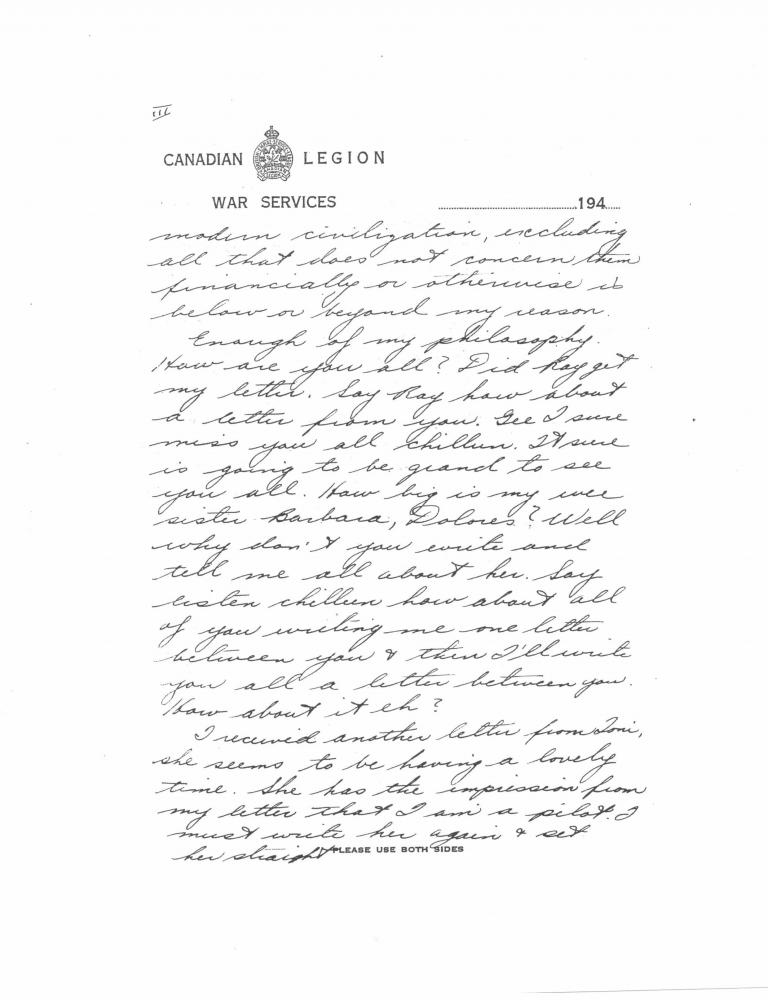 III
CANADIAN LEGION
WAR SERVICES 194
modern civilization, excluding
all that does not concern them
financially or otherwise is
below or beyond my reason.
Enough of my philosophy.
How are you all? Did Ray get
my letter. Say Ray how about
a letter from you. Gee I sure
miss you all chillun. It sure
is going to be grand to see
you all. How big is my wee
sister Barbara, Dolores? Well
why don't you write and
tell me all about her. Say
listen chilleen how about all
of you writing me one letter
between you & then I'll write
you all a letter between you.
How about it eh?
I received another letter from Toni,
she seems to be having a lovely
time. She has the impression from
my letter that I am a pilot. I
must write her again & set
her straight
PLEASE USE BOTH SIDES